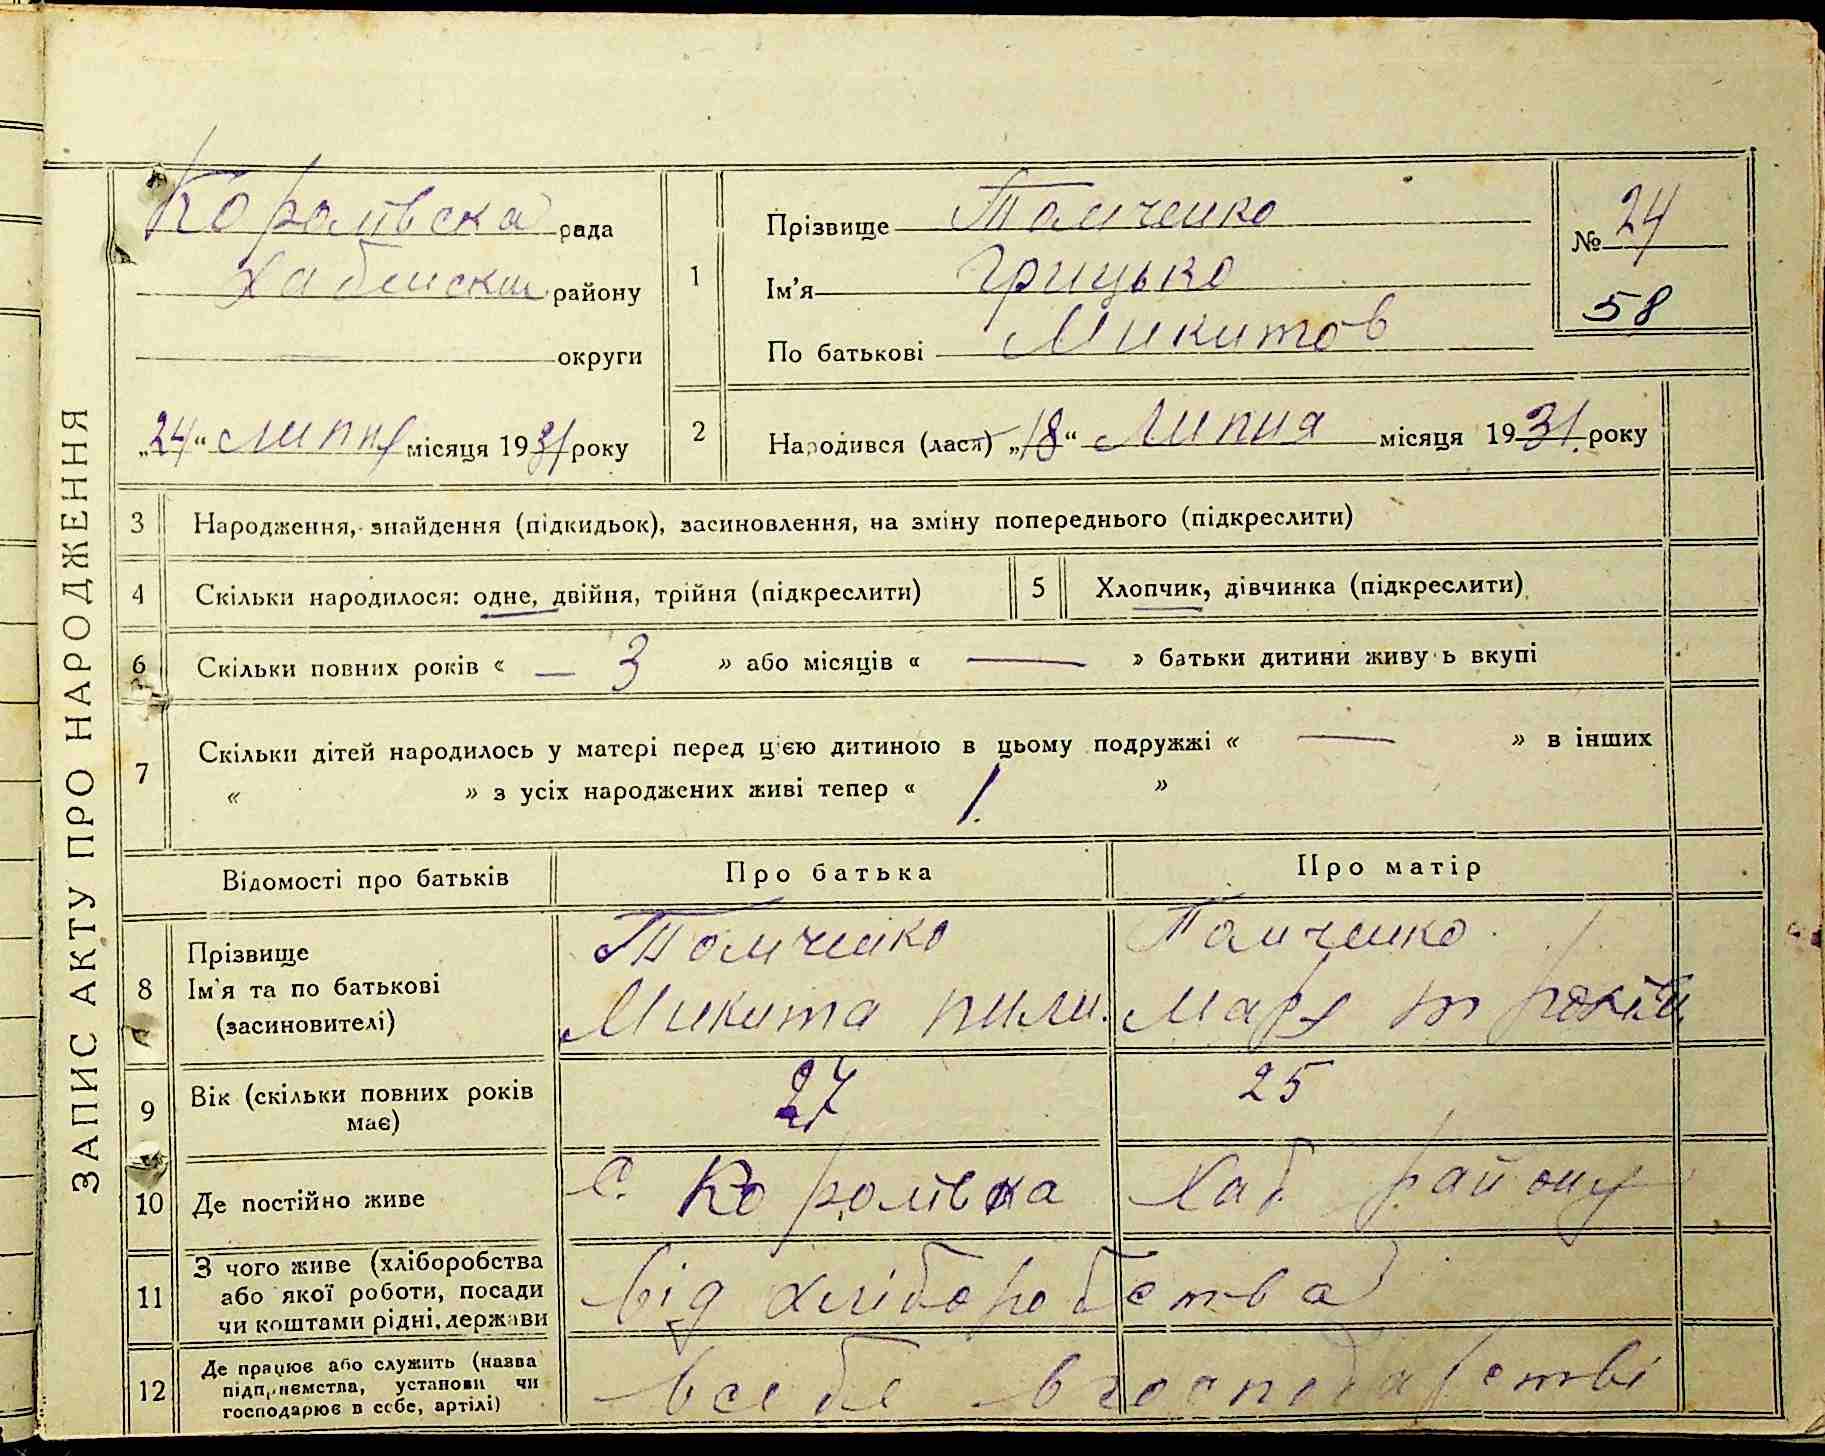 ЗАПИС АКТУ ПРО НАРОДЖЕННЯ
Королівська рада
Хабенский району
округи
„24“ липня місяця 1931 року
1
Прізвище Томченко
Ім'я Грицько
По батькові Микитов
№ 24
58
2
Народився (лася) „18“ Липня місяця 1931. року
3 Народження, знайдення (підкидьок), засиновлення, на зміну попереднього (підкреслити)
4 Скільки народилося: одне, двійня, трійня (підкреслити)
5 Хлопчик, дівчинка (підкреслити)
6 Скільки повних років « — 3 » або місяців « — » батьки дитини живуть вкупі
7 Скільки дітей народилось у матері перед цією дитиною в цьому подружжі « — » в інших
« » з усіх народжених живі тепер « 1. »
Відомості про батьків
Про батька
Про матір
8
Прізвище
Ім'я та по батькові
(засиновителі)
Томченко
Микита Пили.
Томченко
Мар
9
Вік (скільки повних років
має)
27
25
10 Де постійно живе
с. Королівка Хаб. району
11
З чого живе (хліборобства
або якої роботи, посади
чи коштами рідні, держави
від хліборобства
12
Де працює або служить (назва
підприємства, установи чи
господарює в себе, артілі)
в себе в господарстві